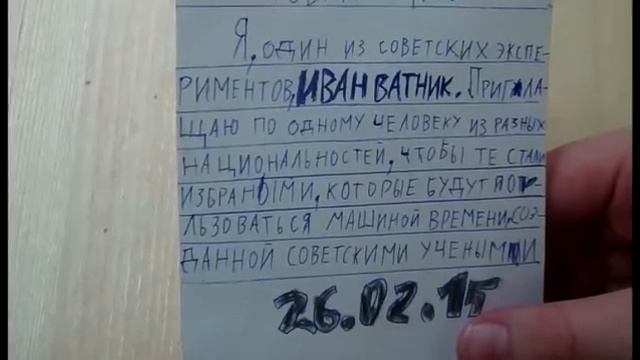 Я, ОДИН ИЗ СОВЕТСКИХ ЭКСПЕ-
РИМЕНТОВ, ИВАН ВАТНИК. ПРИГЛА-
ЩАЮ ПО ОДНОМУ ЧЕЛОВЕКУ ИЗ РАЗНЫХ
НАЦИОНАЛЬНОСТЕЙ, ЧТОБЫ ТЕ СТАЛИ
ИЗБРАННЫМИ, КОТОРЫЕ БУДУТ ПО
ЛЬЗОВАТЬСЯ МАШИНОЙ ВРЕМЕНИ, СОЗ-
ДАННОЙ СОВЕТСКИМИ УЧЕНЫМИ
26.02.15